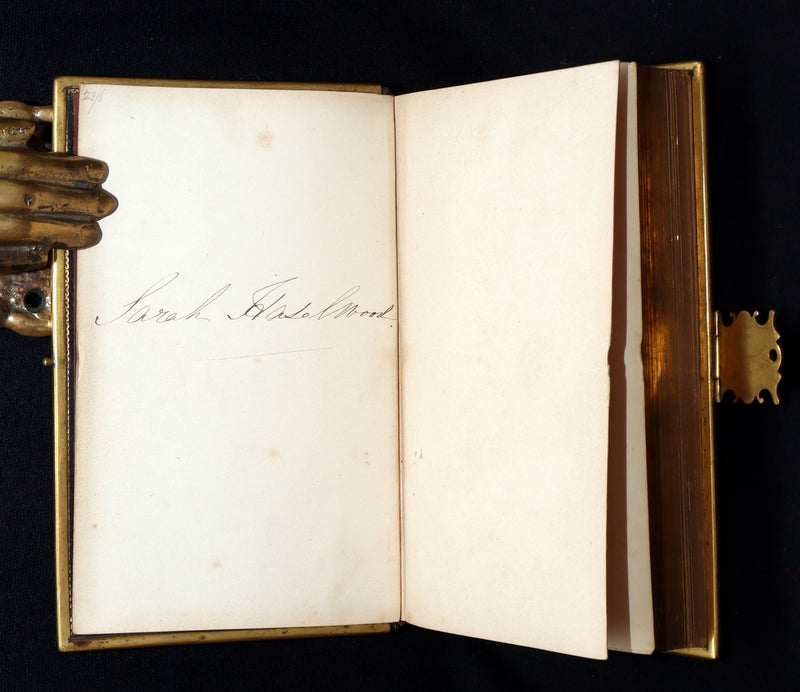 23/6
Sarah Haselwood.